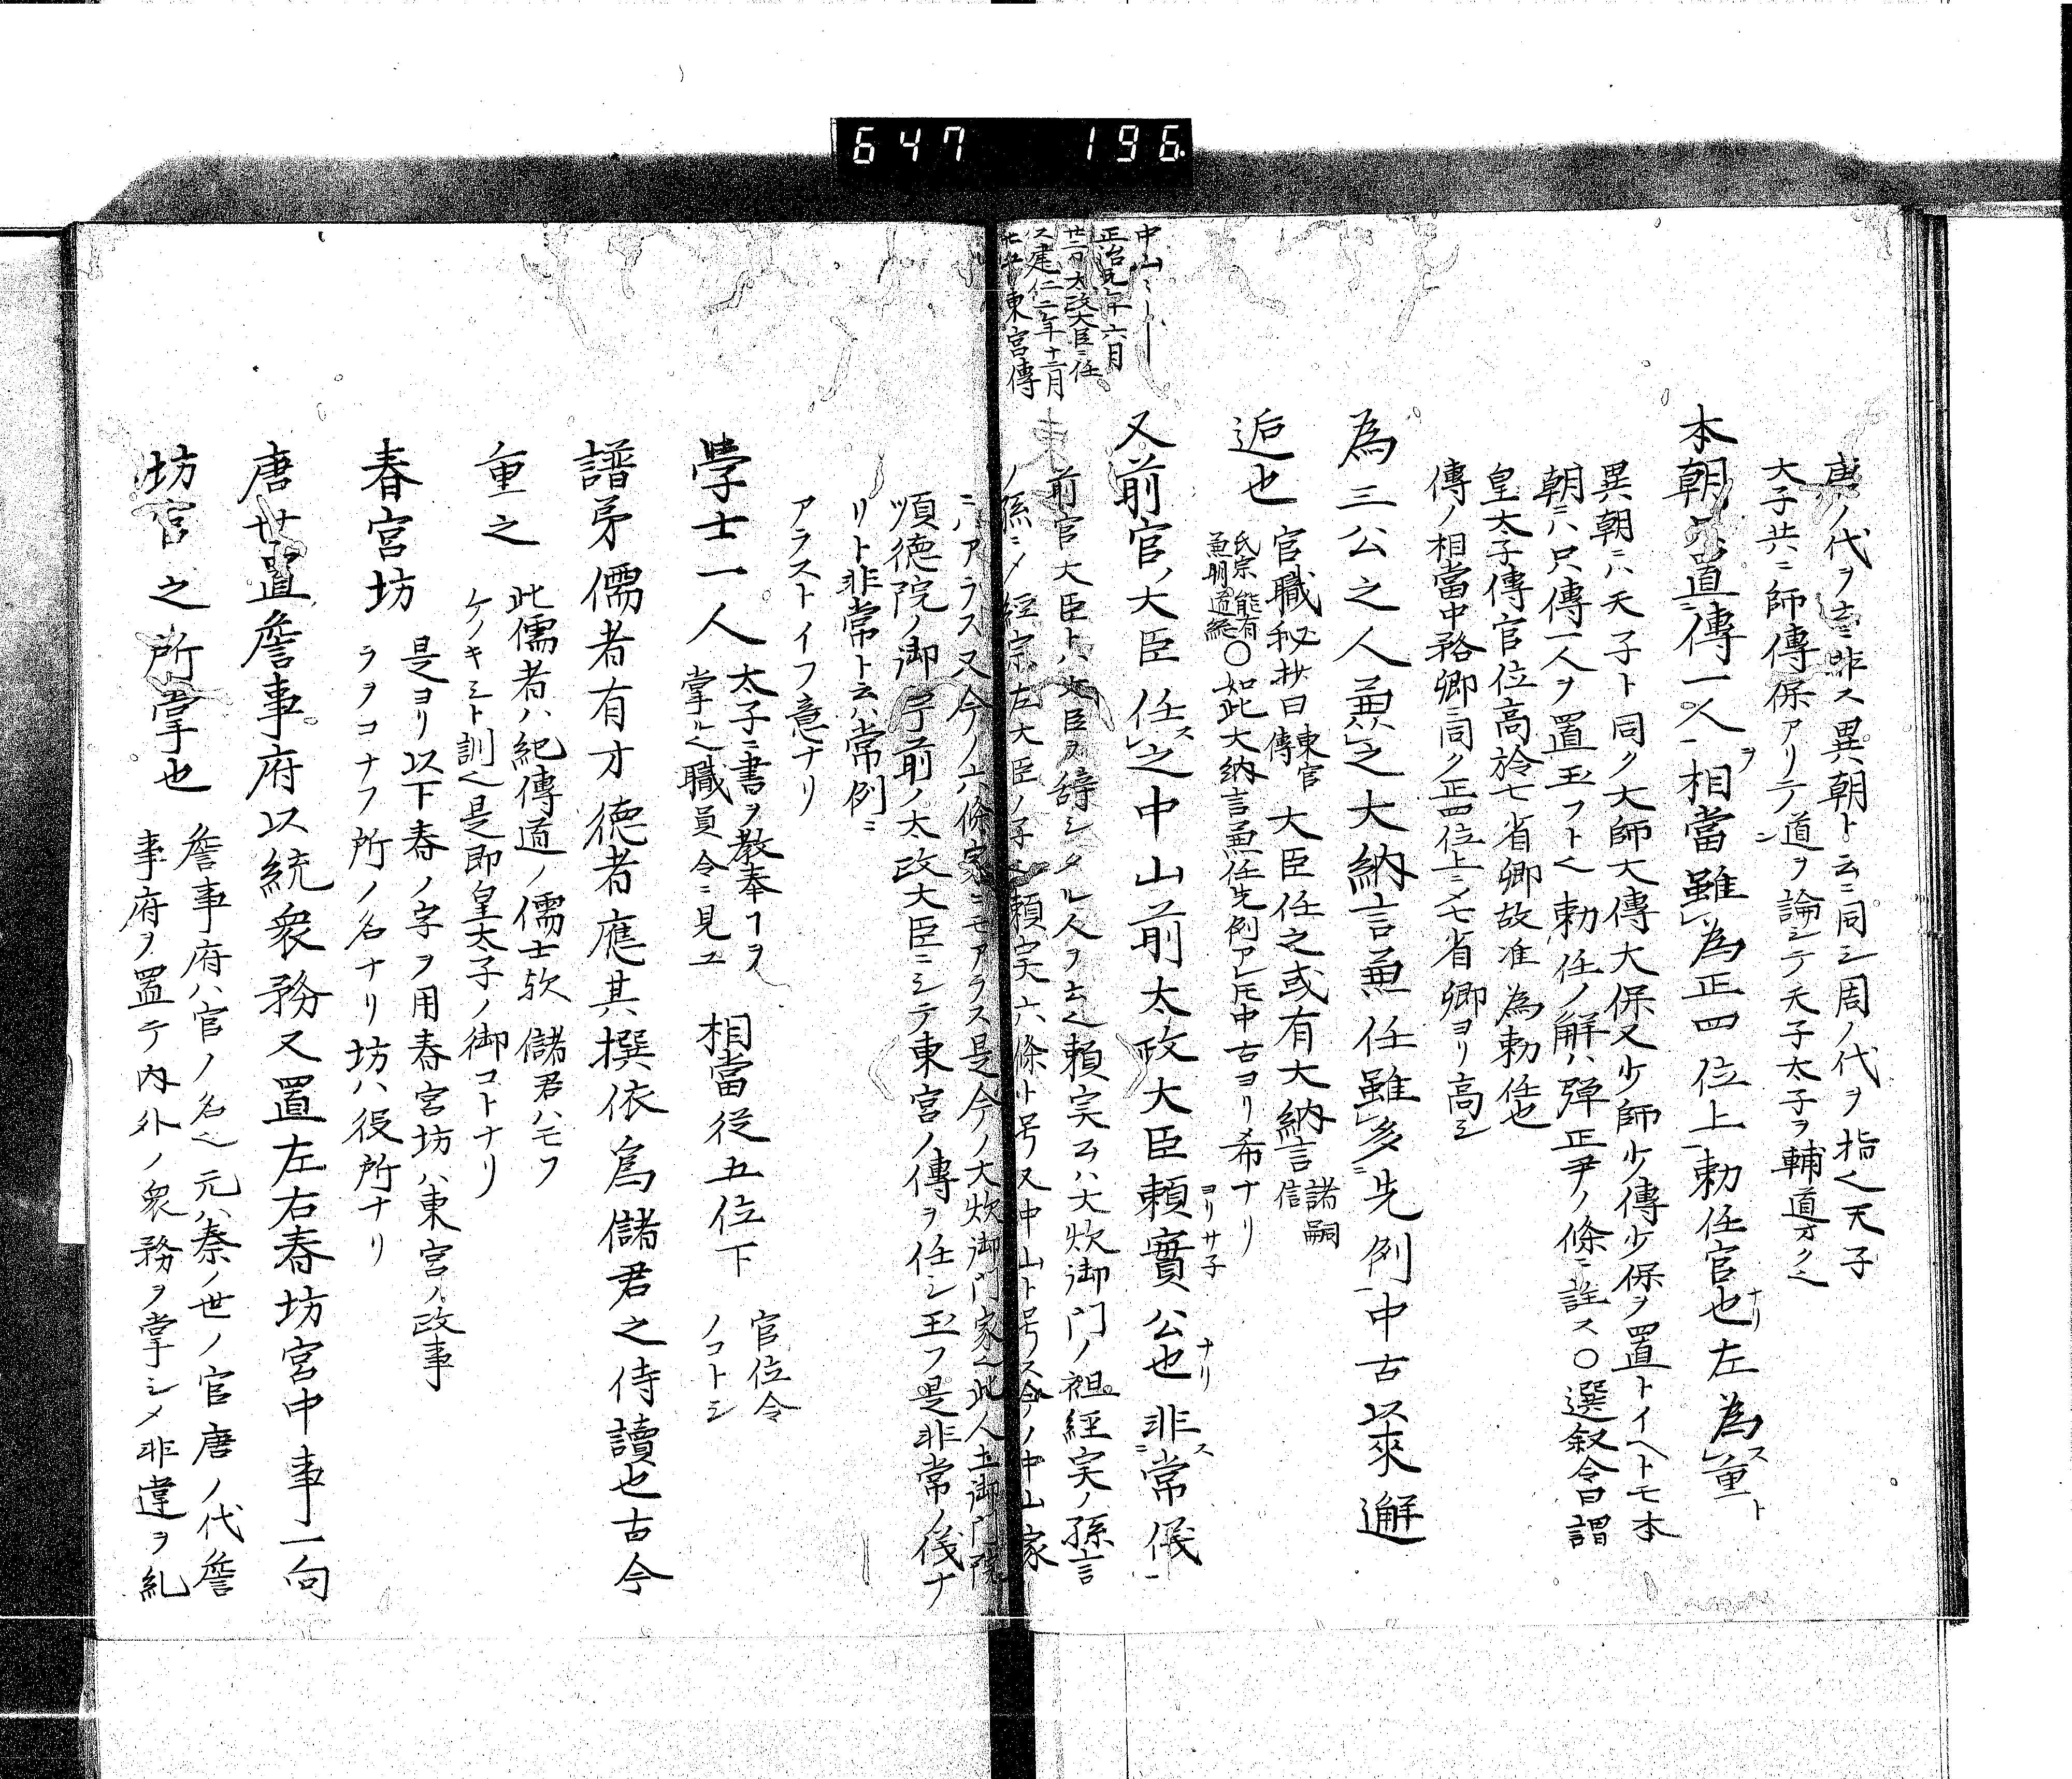 647 196
唐ノ代ヲ云ニ非ス異朝ト云ニ同シ周ノ代ヲ指也天子
大子共ニ師傳保アリテ道ヲ論シテ天子太子ヲ輔道
本朝置傳一人相當雖為正四位上勅任官也左為重
異朝ニハ天子ト同ク大師大傳大保又少師少傳少保ヲ置トイヘトモ本
朝ニハ只傳一人ヲ置玉フト也勅任ノ解ハ弾正尹ノ條ニ註ス〇選叙令曰謂
皇太子傳官位高於七省卿故准為勅任也
傳ノ相當中務卿ニ同ク正四位上ニメ七省卿ヨリ高シ
為三公之人兼之大納言兼任雖多先例中古以來邂
逅也
官職秘抄曰東宮傳大臣任之或有大納言諸嗣信
氏宗能有
〇如此大納言兼任先例アレ圧中古ヨリメ希ナリ
又前官ノ大臣任之中山前太政大臣頼實公也非常儀
ヨリサ子
中山
正治元年六月
廿二日太政大臣ニ任
ス建仁二年十二月
東宮傳
前官大臣トハ大臣ヲ辞シタル人ヲ云也頼実公ハ大炊御門ノ祖経実ノ孫言
ノ孫ニメ経宗左大臣ノ子也頼実六條ト号又中山ト号ス今ノ中山家
ニハアラス又今ノ六條家ニモアラス是今ノ大炊御門家也此人土御門院
順徳院ノ御宇前ノ太政大臣ニシテ東宮ノ傳ヲ任シ玉フ是非常ノ儀ナ
リト非常ト云ハ常例ニ
アラストイフ意ナリ
學士一人
太子ニ書ヲ教奉ヿヲ
掌ル也職員令ニ見ユ
相當従五位下
官位令
ノコトシ
譜苐儒者有才徳者應其撰依為儲君之侍讀也古今
重之
此儒者ハ紀傳道ノ儒士欤儲君ハモフ
ケノキミト訓也是即皇太子ノ御コトナリ
春宮坊
是ヨリ以下春ノ字ヲ用春宮坊ハ東宮ノ政事
ヲヲコナフ所ノ名ナリ坊ハ役所ナリ
唐世置詹事府以統衆務又置左右春坊宮中事一向
坊官之所掌也
詹事府ハ官ノ名也元ハ秦ノ世ノ官唐ノ代詹
事府ヲ置テ内外ノ衆務ヲ掌シメ非違ヲ糺